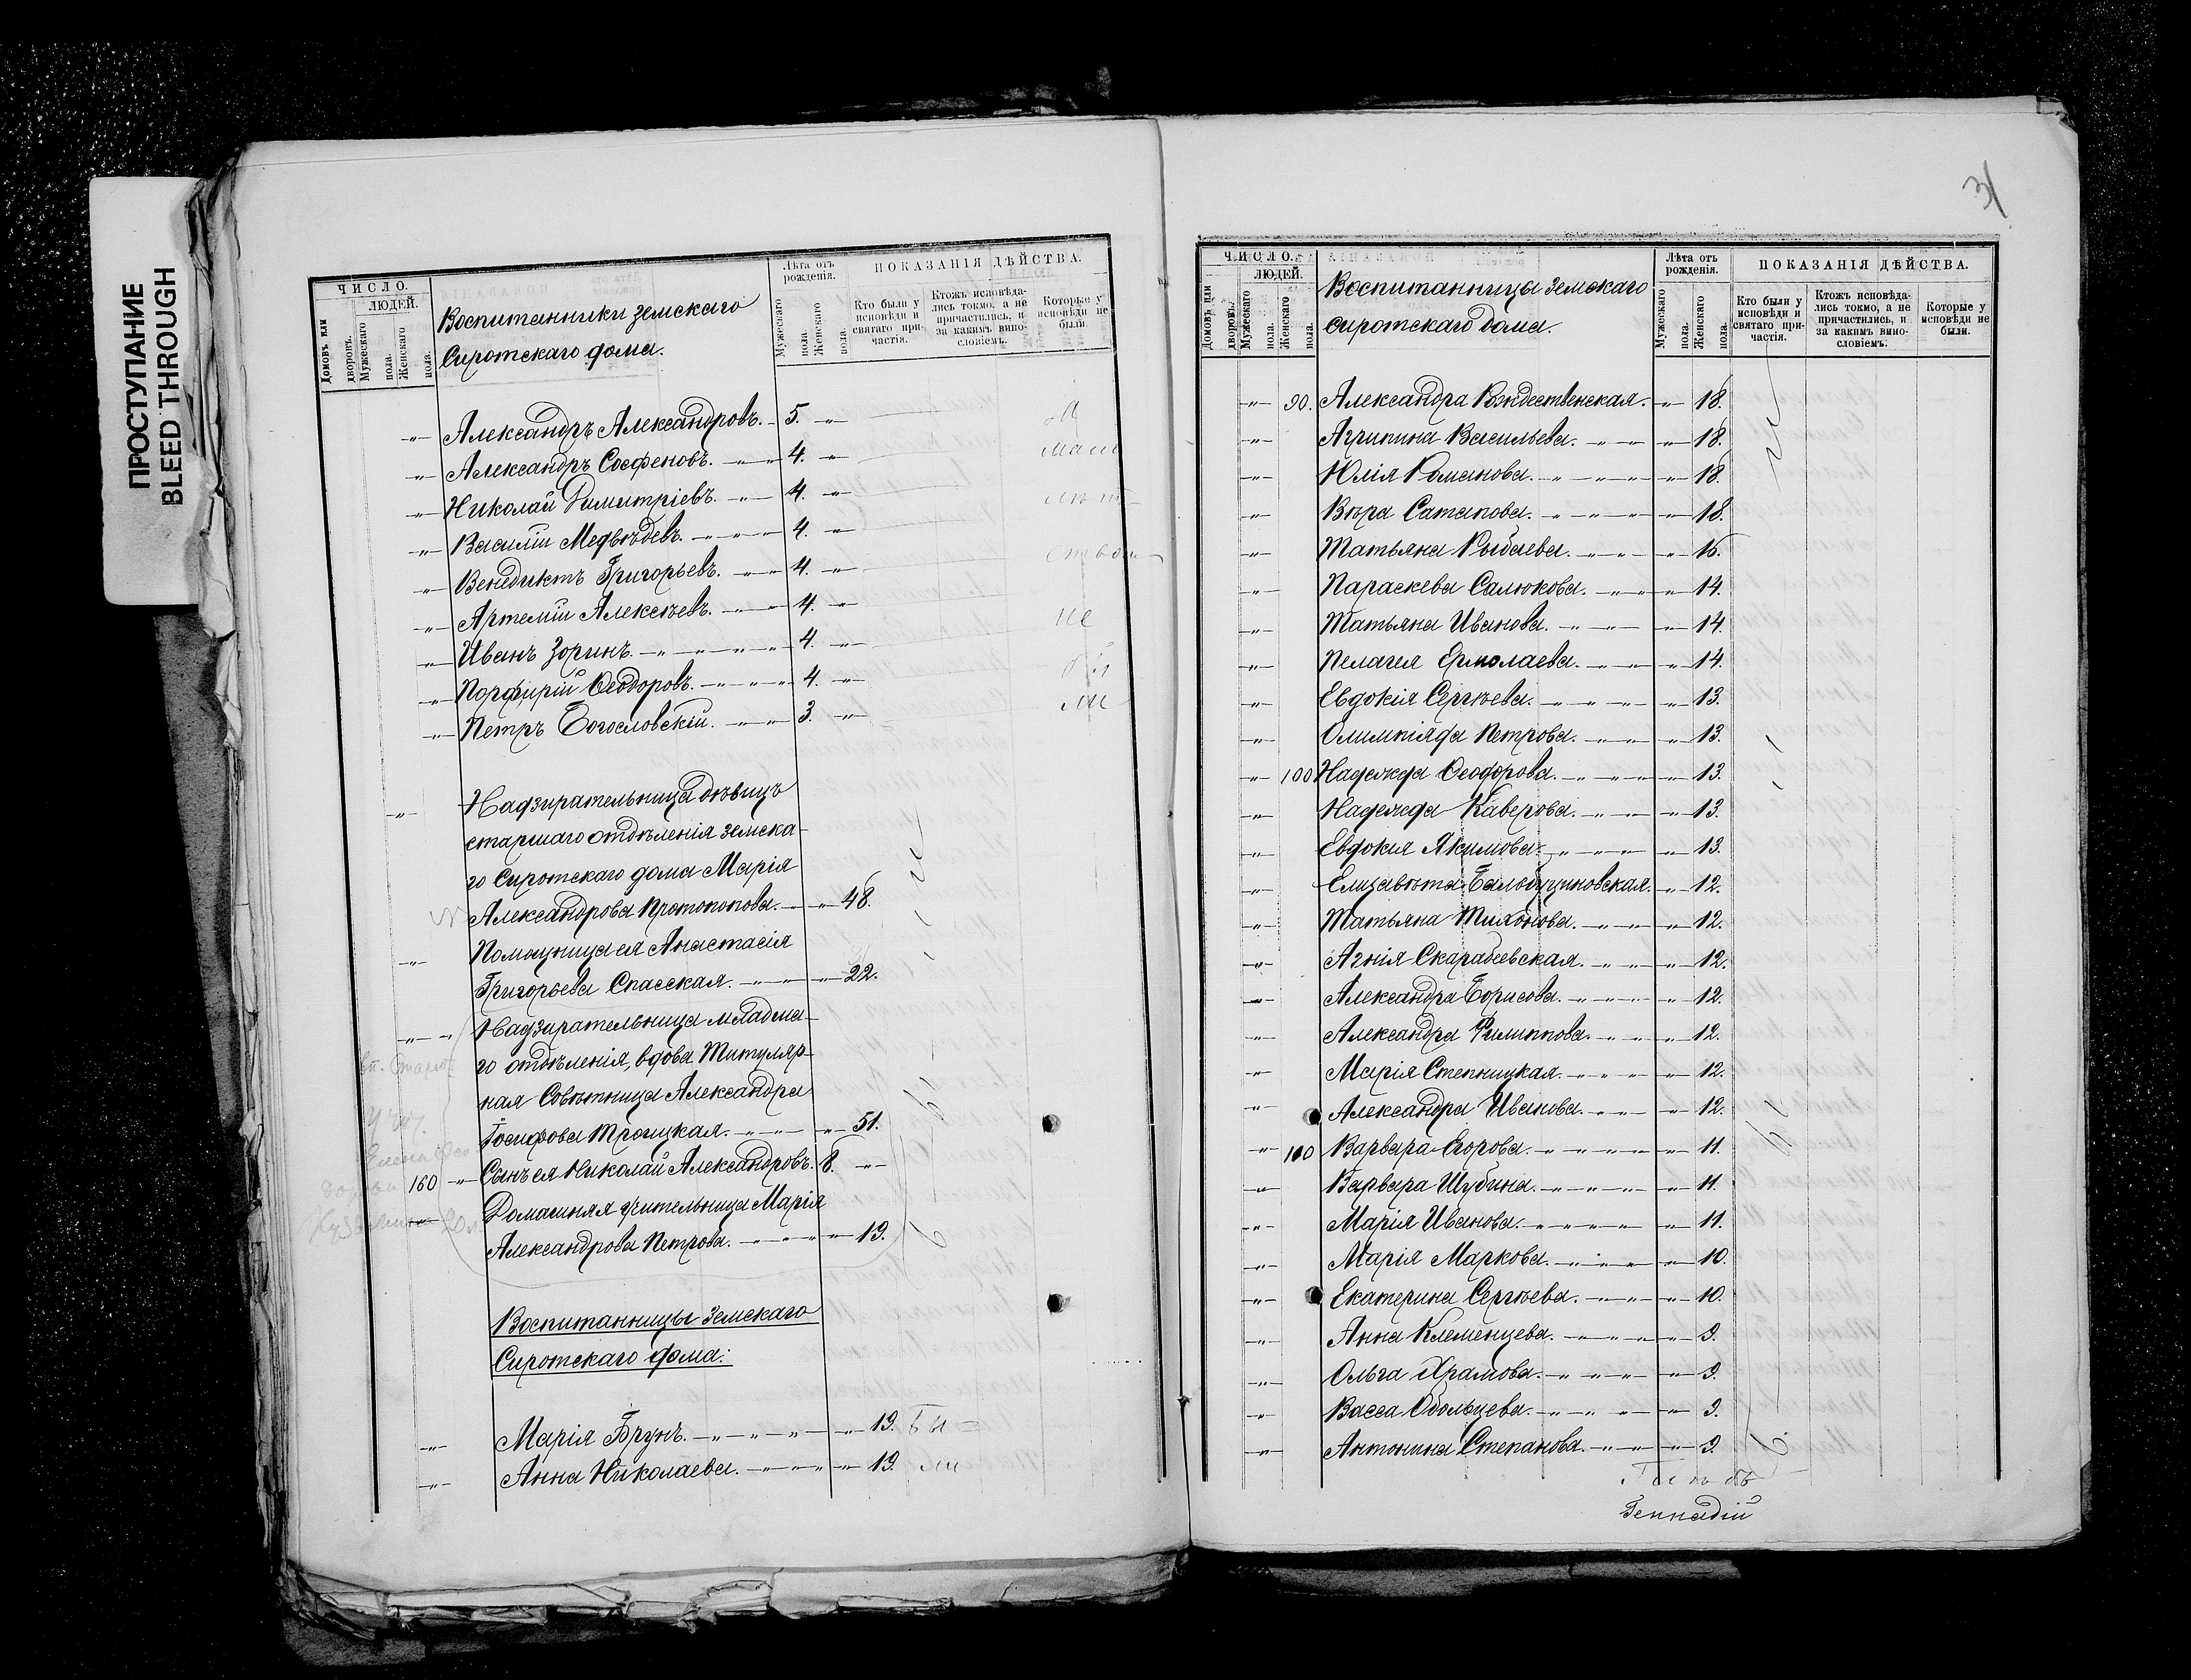 ПРОСТУПАНИЕ
BLEED THROUGH
ЧИСЛО.
ЛЮДЕЙ.
Домовъ или дворовъ.
Мужескаго пола.
Женскаго пола.
Воспитанники земскаго
Сиротскаго дома.
Лѣта отъ рожденія.
Мужескаго пола.
Женскаго пола.
ПОКАЗАНІЯ ДѢЙСТВА.
Кто были у исповѣди и святаго причастія.
Ктожъ исповѣдались токмо, а не причастились, и за какимъ винословіемъ.
Которые у исповѣди не были.
-"- Александръ Александровъ. - 5. -"-
-"- Александръ Сосфеновъ. -"-"- 4. -"-
-"- Николай Димитріевъ. -"- 4. -"-
-"- Василій Медвѣдевъ. -"-"-"- 4. -"-
-"- Венедиктъ Григорьевъ. -"-"- 4. -"-
-"- Артемій Алексѣевъ. -"-"- 4. -"-
-"- Иванъ Зоринъ. -"-"-"-"- 4. -"-
-"- Порфирій Ѳеодоровъ. -"-"-"- 4. -"-
-"- Петръ Богословскій. -"-"- 3. -"-
За мало лѣт ством не бы ли
-"- Надзирательница дѣвицъ
старшаго отдѣленія земска-
го Сиротскаго дома Марія
Александрова Протопопова. -"-"- 48.
-"- Помощница ея Анастасія
Григорьева Спасская. -"-"-"- 22.
-"-"- Надзирательница младша-
го отдѣленія, вдова Титуляр-
ная Совѣтница Александра
Іосифова Троицкая. -"-"-"- 51.
160 -"- Сынъ ея Николай Александровъ. 8. -"-
Домашняя учительница Марія
Александрова Петрова. -"-"-"-"- 19.
Воспитанницы Земскаго
Сиротскаго дома:
-"- Марія Брунъ. -"-"-"-"-"- 19. Бы=
-"- Анна Николаева. -"-"-"-"- 19. ли
31
ЧИСЛО.
ЛЮДЕЙ.
Домовъ или дворовъ.
Мужескаго пола.
Женскаго пола.
Воспитанницы земскаго
сиротскаго дома.
Лѣта отъ рожденія.
Мужескаго пола.
Женскаго пола.
ПОКАЗАНІЯ ДѢЙСТВА.
Кто были у исповѣди и святаго причастія.
Ктожъ исповѣдались токмо, а не причастились, и за какимъ винословіемъ.
Которые у исповѣди не были.
-"- 90. Александра Рождественская. -"- 18.
-"- Агрипина Васильева. -"-"-"- 18.
-"- Юлія Романова. -"-"-"-"- 18.
-"- Вѣра Сатапова. -"-"-"-"- 18.
-"- Татьяна Рыбаева. -"-"-"- 15.
-"- Параскева Салюкова. -"-"-"- 14.
-"- Татьяна Иванова. -"-"-"- 14.
-"- Пелагея Ермолаева. -"-"-"- 14.
-"- Евдокія Сергѣева. -"-"-"-"- 13.
-"- Олимпіяда Петрова. -"-"-"- 13.
-"- 100 Надежда Ѳеодорова. -"-"-"-"- 13.
-"- Надежда Каверова. -"-"-"- 13.
-"- Евдокия Якимова. -"-"-"-"- 13.
-"- Елизавѣта -"- 12.
-"- Татьяна Тихонова. -"-"-"- 12.
-"- Агнія Скарабевская. -"-"-"- 12.
-"- Александра Борисова. -"-"-"- 12.
-"- Александра Филиппова. -"-"-"- 12.
-"- Марія Степницкая. -"-"-"-"- 12.
-"- Александра Иванова. -"-"-"- 12.
-"- 110 Варвара Егорова. -"-"-"-"- 11.
-"- Варвара Шубина. -"-"-"-"- 11.
-"- Марія Иванова. -"-"-"-"-"- 11.
-"- Марія Маркова. -"-"-"-"- 10.
-"- Екатерина Сергѣева. -"-"-"- 10.
-"- Анна Клеменцева. -"-"-"-"- 9.
-"- Ольга Храмова. -"-"-"-"- 9.
-"- Васса Ободьцева. -"-"-"-"- 9.
-"- Антонина Степанова. -"-"-"- 9.
Геннадій